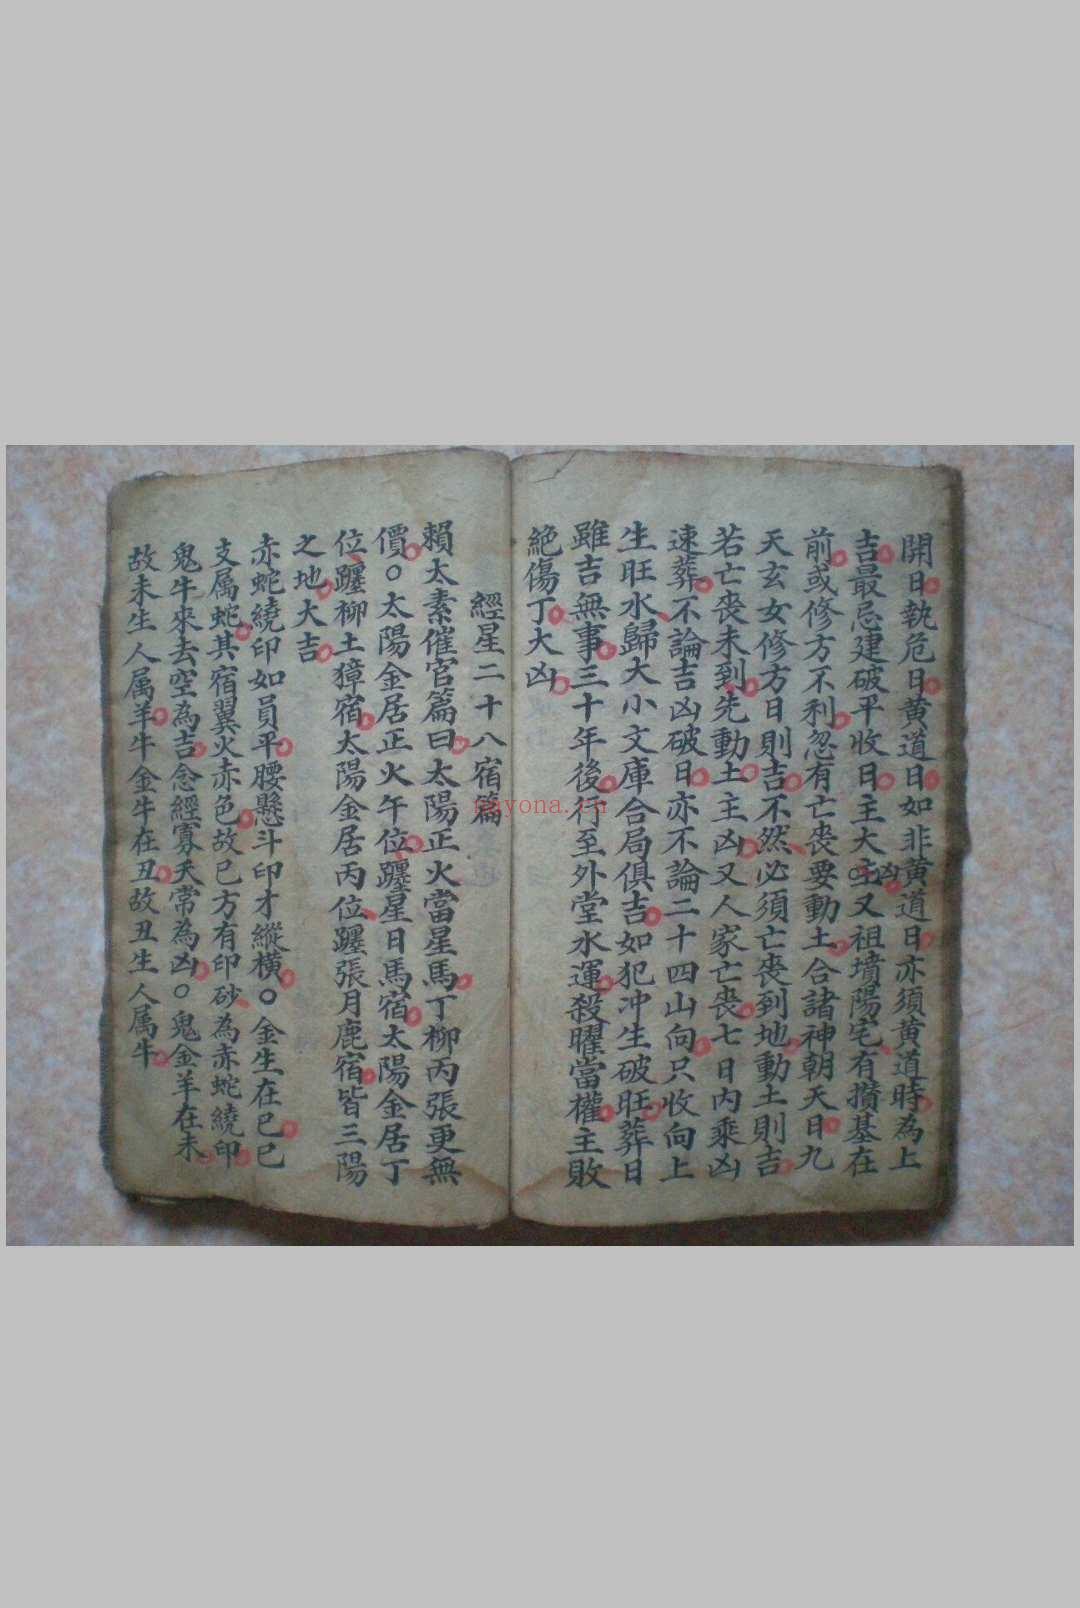 開日執危日黄道日如非黄道日亦須黄道時為上
吉最忌建破平收日主大凶主又祖墳陽宅有攢基在
前或修方不利忽有亡喪要動土合諸神朝天日九
天玄女修方日則吉不然必須亡喪到地動土則吉
若亡喪未到先動土主凶又人家亡喪七日内乘凶
速葬不論吉凶破日亦不論二十四山向只收向上
生旺水歸大小文庫合局俱吉如犯冲生破旺葬日
雖吉無事三十年後行至外堂水運殺曜當權主敗
絶傷丁大凶
經星二十八宿篇
賴太素催官篇曰太陽正火當星馬丁柳丙張更無
價○太陽金居正火午位躔星日馬宿太陽金居丁
位躔柳土獐宿太陽金居丙位躔張月鹿宿皆三陽
之地大吉
赤蛇繞印如員平腰懸斗印才縱横○金生在巳巳
支属蛇其宿翼火赤色故巳方有印砂為赤蛇繞印
鬼牛來去空為吉念經寡天常為凶○鬼金羊在未
故未生人属羊牛金牛在丑故丑生人属牛
nayona.cn